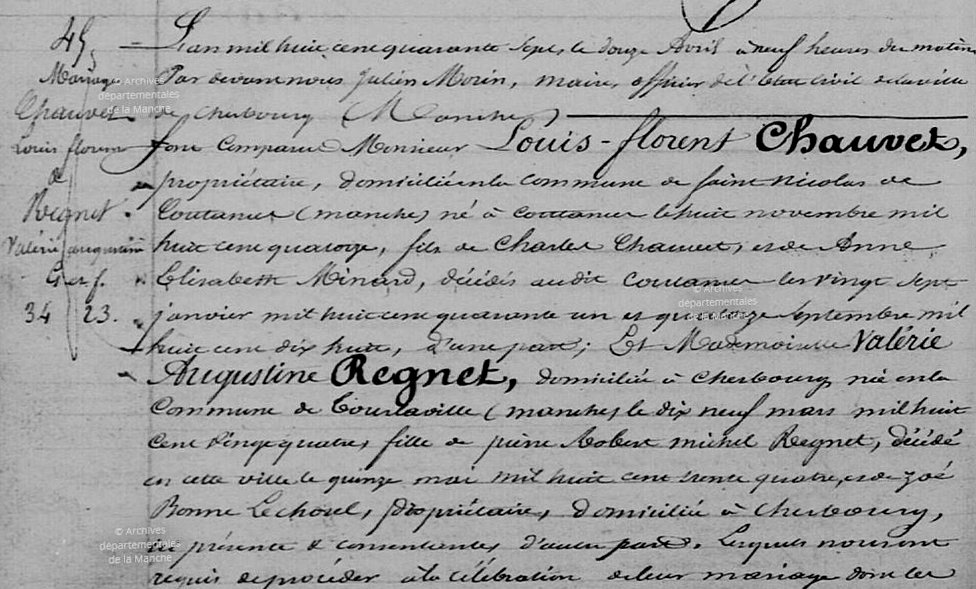 45.
Mariage
Chauvet
Louis florent
&
Regnet
Valérie augustine
G. et f.
34 23.
L'an mil huit cent quarante sept, le douze Avril à neuf heures du matin
Par devant nous Julien Morin, maire, officier de l'Etat civil de la ville
de Cherbourg (Manche)
sont Comparus Monsieur Louis-florent Chauvet,
propriétaire, domicilié en la commune de saint Nicolas de
Coutances (manche) né à coutances le huit novembre mil
huit cent quatorze, fils de Charles Chauvet, et de Anne
Elisabeth Minard, décédés au dit coutances les vingt sept
janvier mil huit cent quarante un et quatorze septembre mil
huit cent dix huit, d'une part; Et Mademoiselle Valérie
Augustine Regnet, domiciliée à Cherbourg née en la
Commune de Tourlaville (manche) le dix neuf mars mil huit
cent vingt quatre, fille de pierre Robert michel Regnet, décédé
en cette ville le quinze mai mil huit cent trente quatre, et de zoé
Bonne Lechouel, propriétaire, domiciliée à Cherbourg,
présente & consentante, d'autre part. Lesquels nous ont
requis de procéder à la célébration de leur mariage dont les
© Archives
départementales
de la Manche
© Archives
départementales
de la Manche
© Archives
départementales
de la Manche